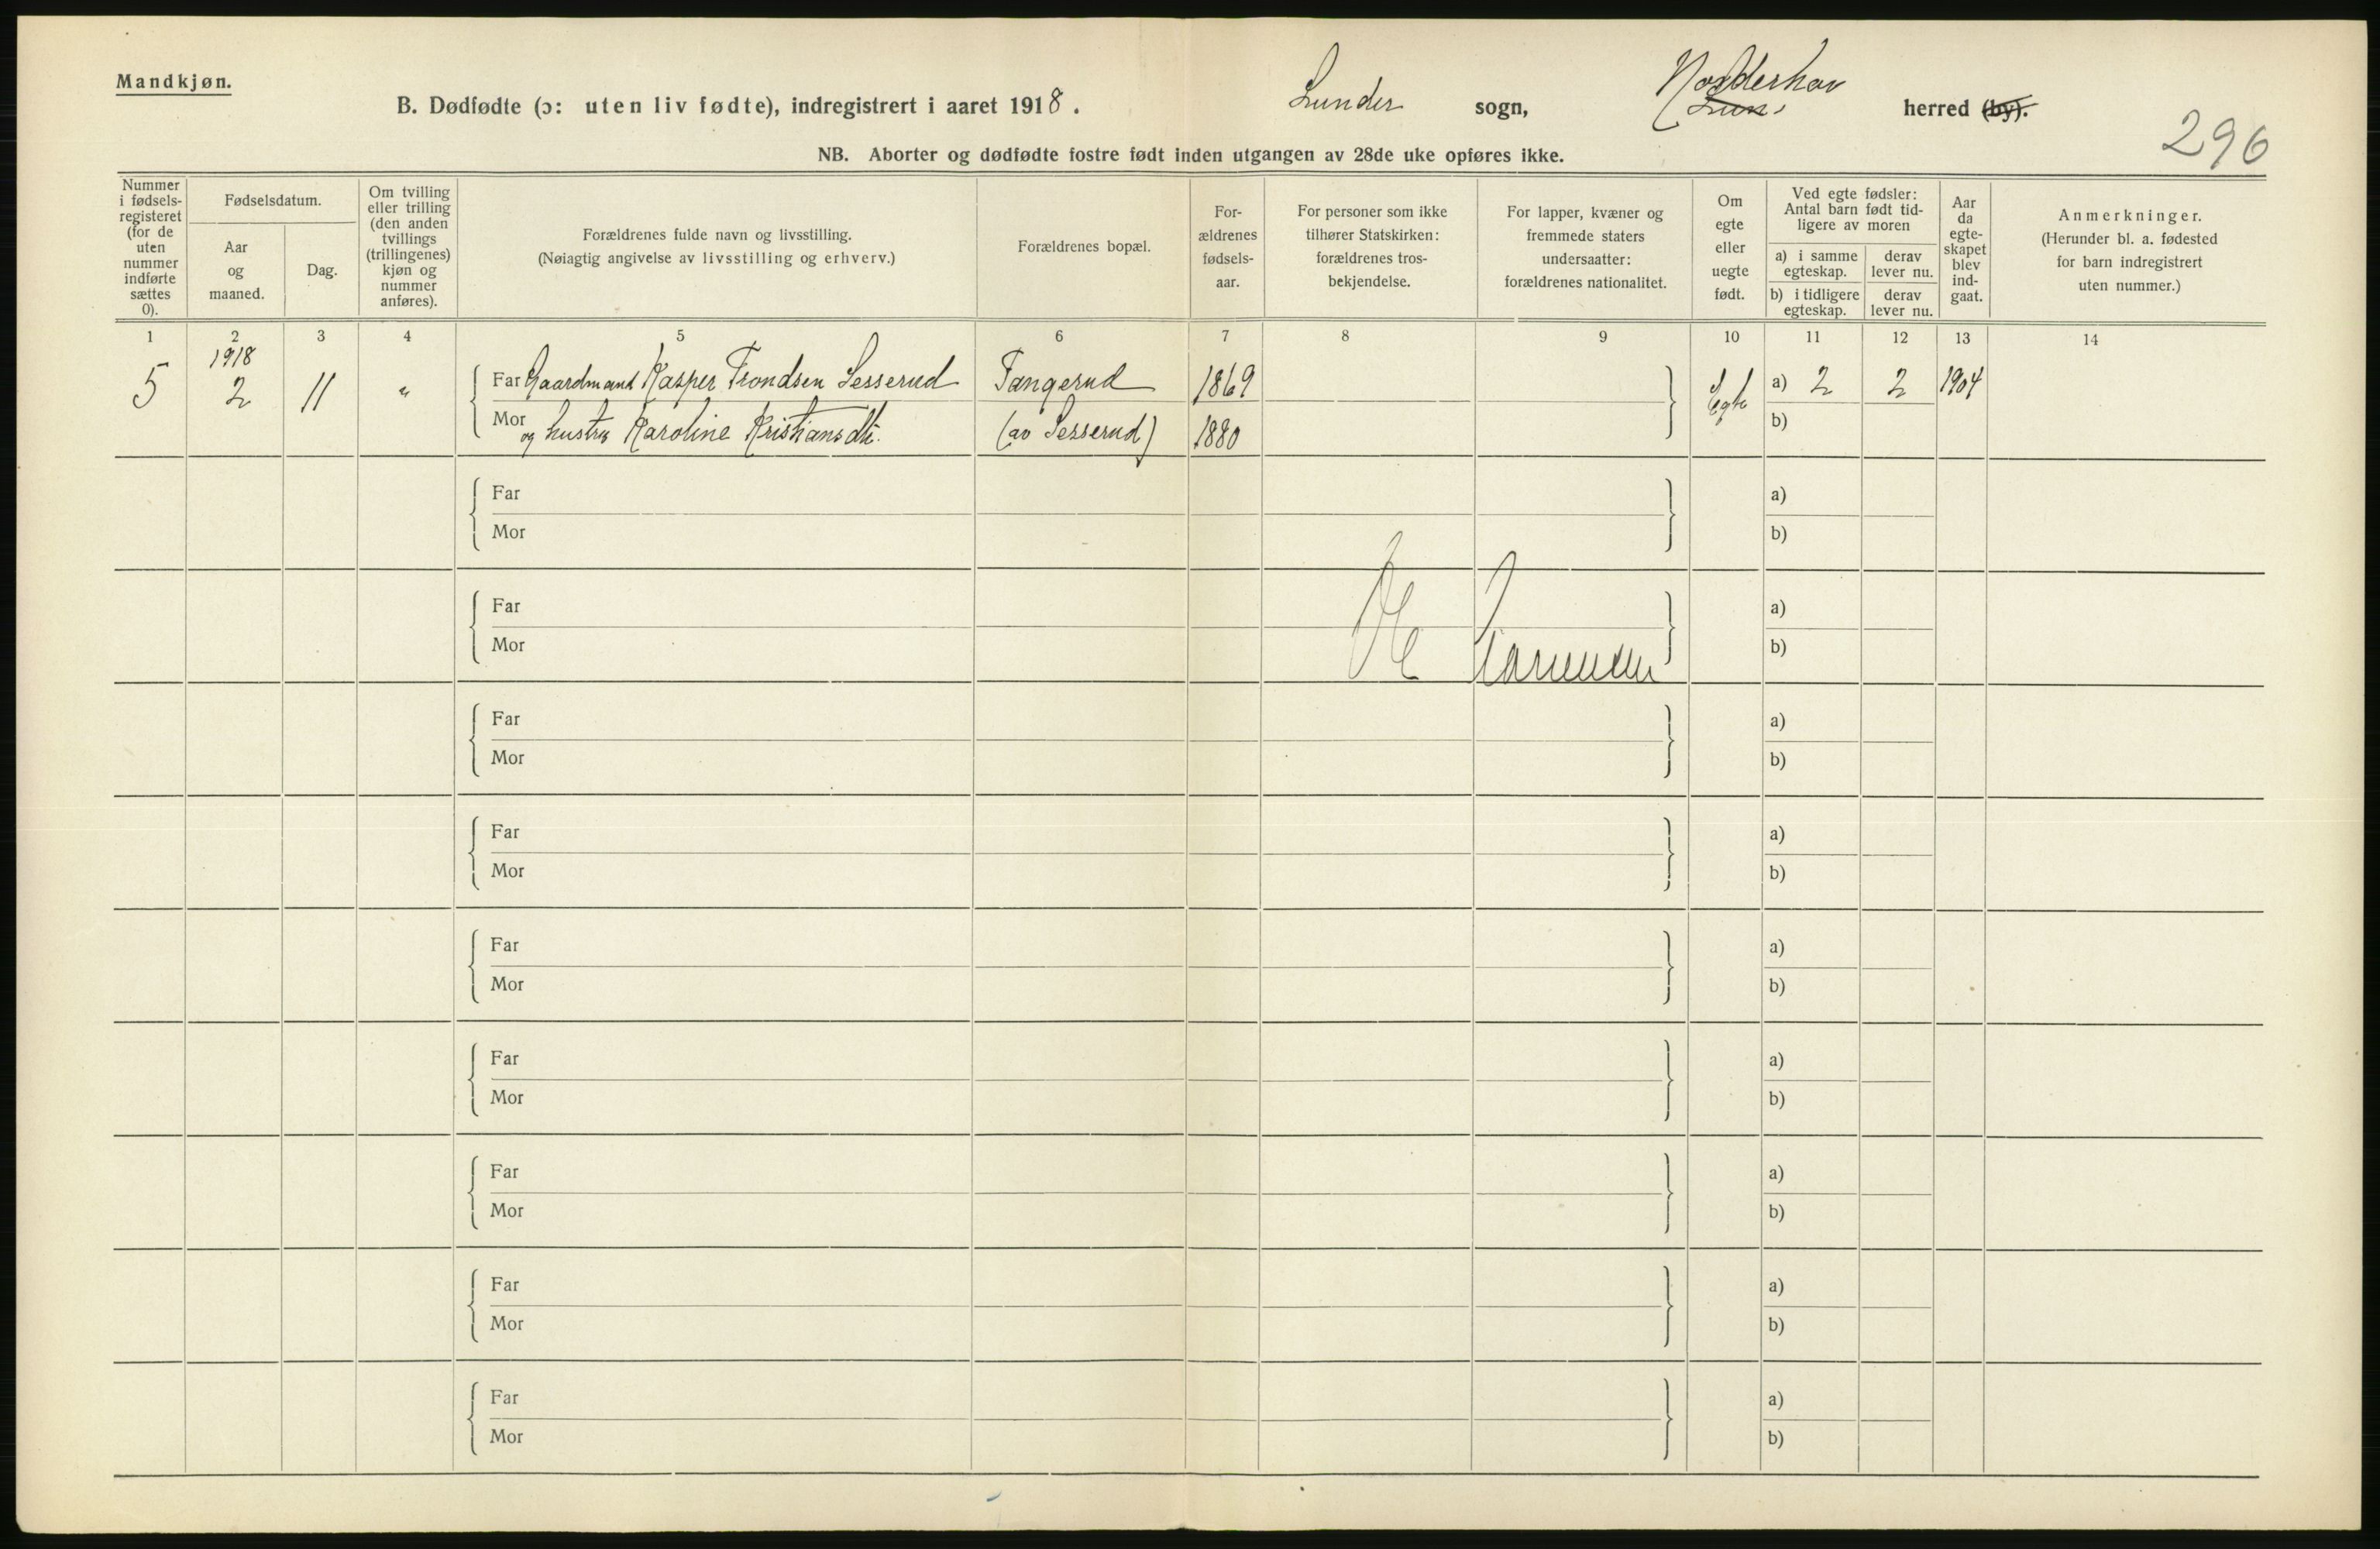 Mandkjøn.
B. Dødfødte (ɔ: uten liv fødte), indregistrert i aaret 1918. Lunder sogn, Norderhov herred (by).
296
NB. Aborter og dødfødte fostre født inden utgangen av 28de uke opføres ikke.
Nummer i fødsels-registeret (for de uten nummer indførte sættes 0).
Fødselsdatum.
Aar og maaned.
Dag.
Om tvilling eller trilling (den anden tvillings (trillingenes) kjøn og nummer anføres).
Forældrenes fulde navn og livsstilling.
(Nøiagtig angivelse av livsstilling og erhverv.)
Forældrenes bopæl.
For-ældrenes fødsels-aar.
For personer som ikke tilhører Statskirken: forældrenes tros-bekjendelse.
For lapper, kvæner og fremmede staters undersaatter: forældrenes nationalitet.
Om egte eller uegte født.
Ved egte fødsler: Antal barn født tid-ligere av moren
a) i samme egteskap.
derav lever nu.
b) i tidligere egteskap.
derav lever nu.
Aar da egte-skapet blev ind-gaat.
Anmerkninger.
(Herunder bl. a. fødested for barn indregistrert uten nummer.)
1 2 3 4 5 6 7 8 9 10 11 12 13 14
1918
5 2 11 " Far Gaardmand Kasper Trondsen Sesserud Tangerud 1869 Egte a) 2 2 1904
Mor og hustru Karoline Kristiansdtr. (av Sesserud) 1880 b)
Far a)
Mor b)
Far a)
Mor b)
Far a)
Mor b)
Far a)
Mor b)
Far a)
Mor b)
Far a)
Mor b)
Far a)
Mor b)
Far a)
Mor b)
Far a)
Mor b)